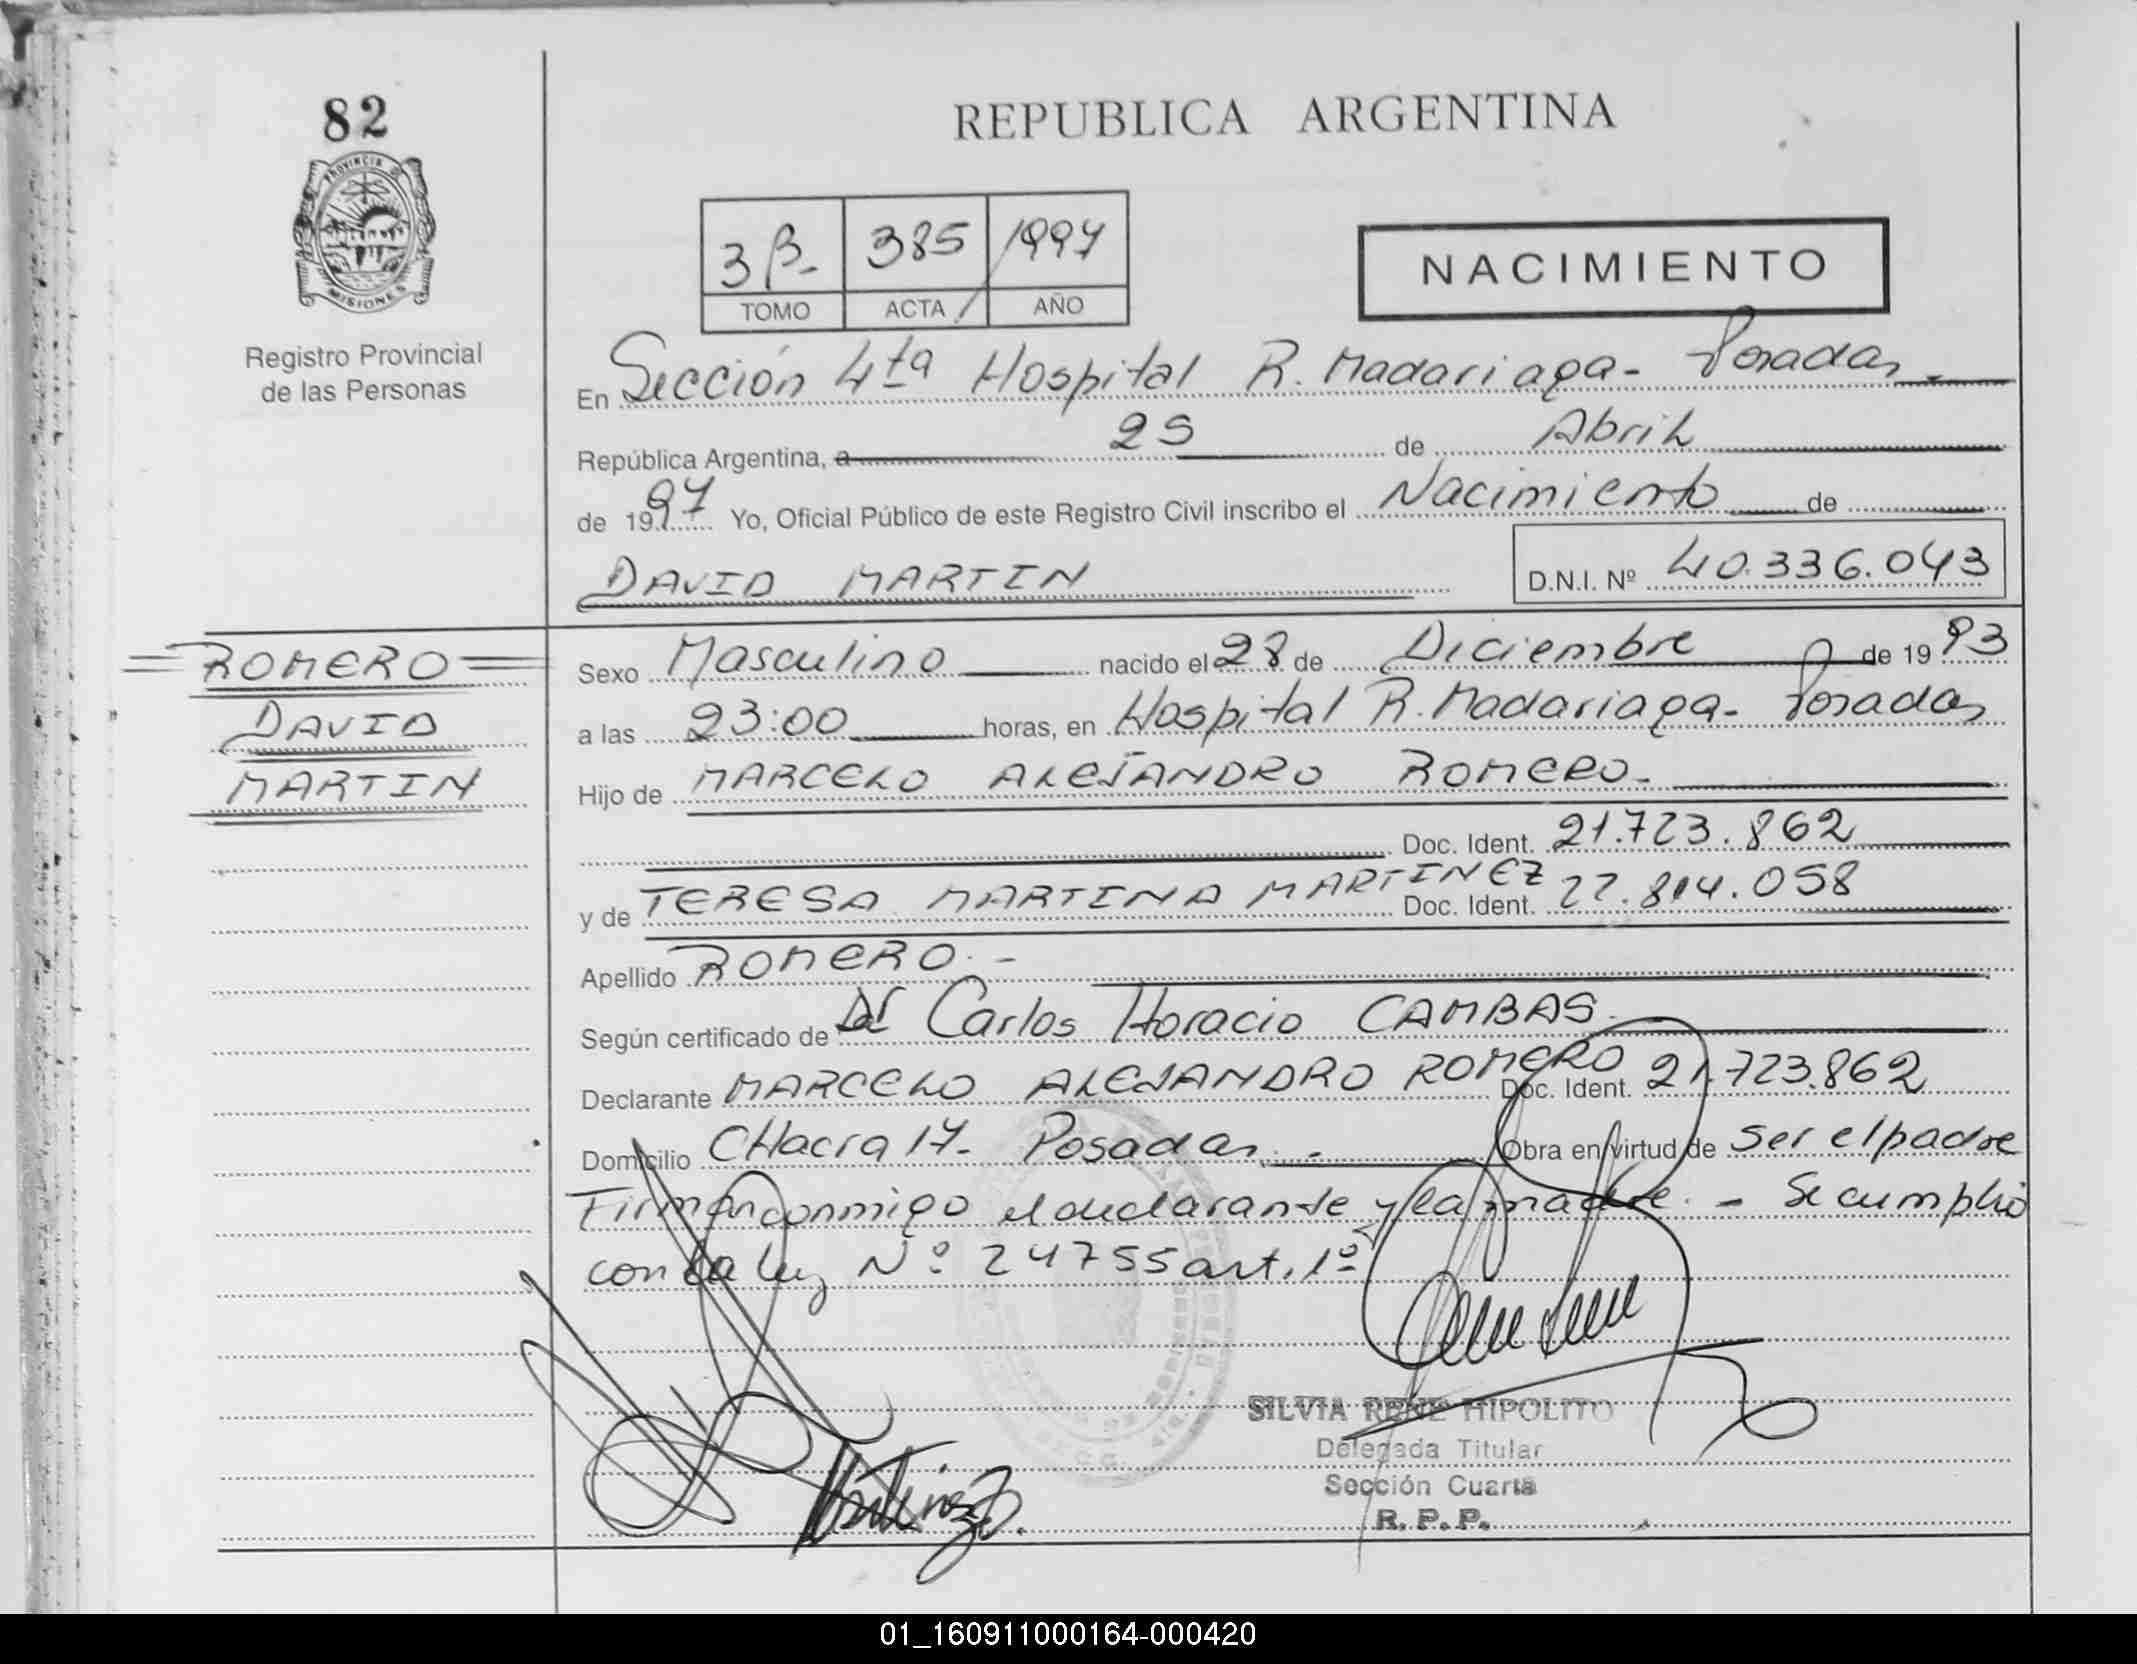 82
PROVINCIA D
MISIONES
Registro Provincial
de las Personas
REPUBLICA ARGENTINA
3 B- 385 1997
TOMO ACTA AÑO
NACIMIENTO
En Sección 4ta Hospital R. Madariaga- Posadas
República Argentina, a 25 de Abril
de 1997 Yo, Oficial Público de este Registro Civil inscribo el Nacimiento de
DAVID MARTIN D.N.I. Nº 40.336.043
ROMERO
DAVID
MARTIN
Sexo Masculino nacido el 28 de Diciembre de 1993
a las 23:00 horas, en Hospital R. Madariaga- Posadas
Hijo de MARCELO ALEJANDRO ROMERO-
Doc. Ident. 21.723.862
y de TERESA MARTINA MARTINEZ Doc. Ident. 22.814.058
Apellido ROMERO.-
Según certificado de Dr Carlos Horacio CAMBAS.
Declarante MARCELO ALEJANDRO ROMERO Doc. Ident. 21.723.862
Domicilio CHacra 17- Posadas.- Obra en virtud de ser el padre
Firman conmigo el declarante y la madre.- Se cumplió
con la ley Nº 24755 art. 1º
Martinez
SILVIA RENE HIPOLITO
Delegada Titular
Sección Cuarta
R. P. P.
01_160911000164-000420